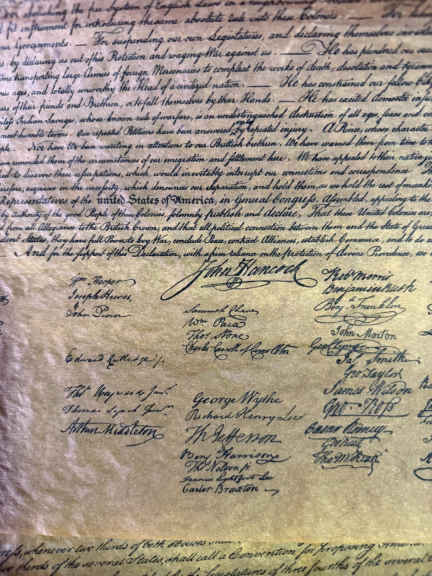 abolishing the free System of English Laws in a
and fit instrument for introducing the same absolute rule into these Colonies For
Governments. — For suspending our own Legislatures, and declaring themselves
by declaring us out of his Protection and waging War against us. — He has plundered our
transporting large Armies of foreign Mercenaries to compleat the works of death, desolation and tyranny
ages, and totally unworthy the Head of a civilized nation. — He has constrained our fellow
of their friends and Brethren, or to fall themselves by their Hands. — He has excited domestic
Indian Savages, whose known rule of warfare, is an undistinguished destruction of all ages, sexes and
most humble terms: Our repeated Petitions have been answered by repeated injury. A Prince, whose character
Nor have We been wanting in attentions to our Brittish brethren. We have warned them from time to
reminded them of the circumstances of our emigration and settlement here. We have appealed to their native
to disavow these usurpations, which, would inevitably interrupt our connections and correspondence. They
therefore, acquiesce in the necessity, which denounces our Separation, and hold them, as we hold the rest of mankind
Representatives of the united States of America, in General Congress, Assembled, appealing to the
by Authority of the good People of these Colonies, solemnly publish and declare, That these United Colonies are
from all Allegiance to the British Crown, and that all political connection between them and the State of Great
States, they have full Power to levy War, conclude Peace, contract Alliances, establish Commerce, and to do
And for the support of this Declaration, with a firm reliance on the Protection of divine Providence, we
John Hancock
Wm Hooper
Joseph Hewes,
John Penn
Edward Rutledge /.
Thos Heyward Junr.
Thomas Lynch Junr.
Arthur Middleton
Samuel Chase
Wm Paca
Thos Stone
Charles Carroll of Carrollton
George Wythe
Richard Henry Lee
Th Jefferson
Benj Harrison
Thos Nelson jr.
Francis Lightfoot Lee
Carter Braxton
Robt Morris
Benjamin Rush
Benj. Franklin
John Morton
Geo Clymer
Jas. Smith
Geo. Taylor
James Wilson
Geo. Ross
Caesar Rodney
Geo Read
Tho M:Kean
whenever two thirds of both Houses
two thirds of the several States, shall call a Convention for proposing
the Legislatures of three fourths of the several